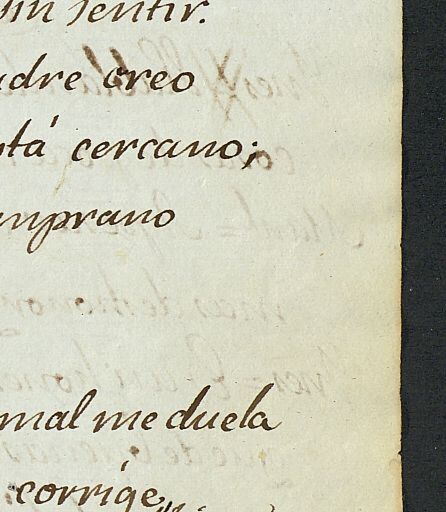 sin sentir.
adre creo
stá cercano;
mprano
mal me duela
corríge